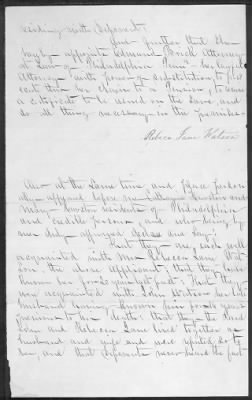 residing with deponent.
And further that she
hereby appoints Edmund
Attorney at Law of Philadelphia Penna her lawful
Attorney with power of substitution to pro
cute this her claim to a Pension, to receive
a certificate to be issued on the same, and
do all things necessary in the premises.
Rebecca Jane Watson
Also at the same time and place person
ally appeared before me
Mary residents of Philadelphia
and credible persons, and who being by
me duly affirmed declare and say:
That they are each well
acquainted with Mrs Rebecca Jane Wat
son, the above applicant, that they have
known her for years last past. That they
were acquainted with John Watson her late
husband having known him for years
previous to his death; that they the said
John and Rebecca Jane lived together as
husband and wife and were reputed so to
be, and that deponents never heard the fact